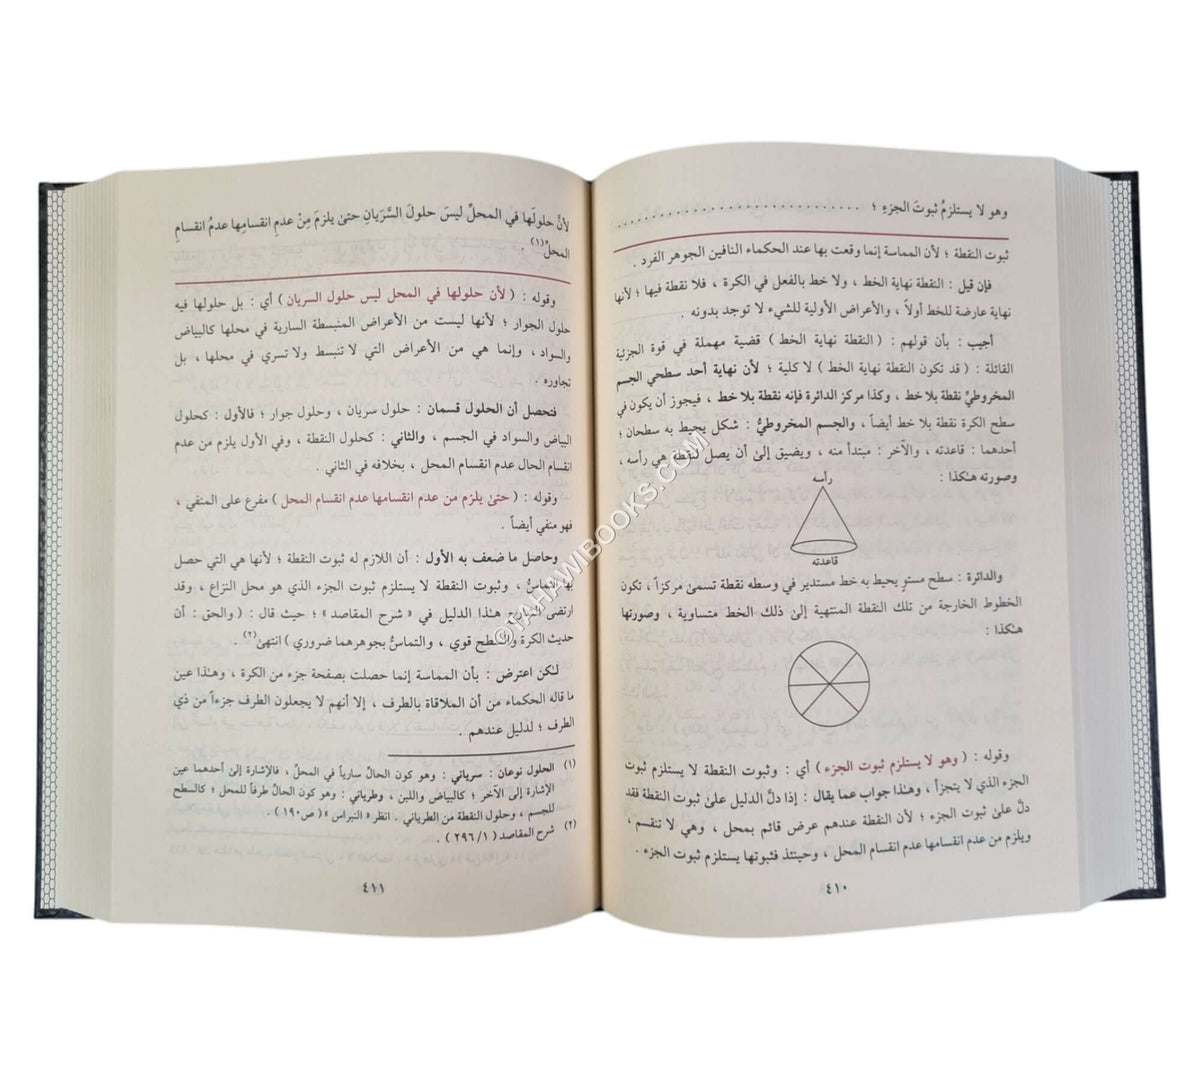 وهو لا يستلزمُ ثبوتَ الجزءِ ؛ . . . . . . . . . . . . . . . . . . . . . . . . . . . . . .
ثبوت النقطة ؛ لأن المماسة إنما وقعت بها عند الحكماء النافين الجوهر الفرد .
فإن قيل : النقطة نهاية الخط ، ولا خط بالفعل في الكرة ، فلا نقطة فيها ؛ لأنها
نهاية عارضة للخط أولاً ، والأعراض الأولية للشيء لا توجد بدونه .
أجيب : بأن قولهم : ( النقطة نهاية الخط ) قضية مهملة في قوة الجزئية
القائلة : ( قد تكون النقطة نهاية الخط ) لا كلية ؛ لأن نهاية أحد سطحي الجسم
المخروطيِّ نقطة بلا خط ، وكذا مركز الدائرة فإنه نقطة بلا خط ، فيجوز أن يكون في
سطح الكرة نقطة بلا خط أيضاً ، والجسم المخروطيُّ : شكل يحيط به سطحان ؛
أحدهما : قاعدته ، والآخر : مبتدأ منه ، ويضيق إلىٰ أن يصل لنقطة هي رأسه ،
وصورته هٰكذا :
رأسه
قاعدته
والدائرة : سطح مستوٍ يحيط به خط مستدير في وسطه نقطة تسمىٰ مركزاً ، تكون
الخطوط الخارجة من تلك النقطة المنتهية إلىٰ ذلك الخط متساوية ، وصورتها
هٰكذا :
وقوله : ( وهو لا يستلزم ثبوت الجزء ) أي : وثبوت النقطة لا يستلزم ثبوت
الجزء الذي لا يتجزأ ، وهٰذا جواب عما يقال : إذا دلَّ الدليل علىٰ ثبوت النقطة فقد
دلَّ علىٰ ثبوت الجزء ؛ لأن النقطة عندهم عرض قائم بمحل ، وهي لا تنقسم ،
ويلزم من عدم انقسامها عدم انقسام المحل ، وحينئذ فثبوتها يستلزم ثبوت الجزء .
٤١٠
لأنَّ حلولَها في المحلِّ ليسَ حلولَ السَّرَيانِ حتىٰ يلزمَ مِنْ عدمِ انقسامِها عدمُ انقسامِ
المحلِّ(١) .
وقوله : ( لأن حلولها في المحل ليس حلول السريان ) أي : بل حلولها فيه
حلول الجوار ؛ لأنها ليست من الأعراض المنبسطة السارية في محلها كالبياض
والسواد ، وإنما هي من الأعراض التي لا تنبسط ولا تسري في محلها ، بل
تجاوره .
فتحصل أن الحلول قسمان : حلول سريان ، وحلول جوار ؛ فالأول : كحلول
البياض والسواد في الجسم ، والثاني : كحلول النقطة ، وفي الأول يلزم من عدم
انقسام الحال عدم انقسام المحل ، بخلافه في الثاني .
وقوله : ( حتىٰ يلزم من عدم انقسامها عدم انقسام المحل ) مفرع على المنفي ،
فهو منفي أيضاً .
وحاصل ما ضعف به الأول : أن اللازم له ثبوت النقطة ؛ لأنها هي التي حصل
بها التماسُّ ، وثبوت النقطة لا يستلزم ثبوت الجزء الذي هو محل النزاع ، وقد
ارتضى الشارح هٰذا الدليل في « شرح المقاصد » ؛ حيث قال : ( والحق : أن
حديث الكرة والسطح قوي ، والتماسُّ بجوهرهما ضروري ) انتهىٰ(٢) .
لٰكن اعترض : بأن المماسة إنما حصلت بصفحة جزء من الكرة ، وهٰذا عين
ما قاله الحكماء من أن الملاقاة بالطرف ، إلا أنهم لا يجعلون الطرف جزءاً من ذي
الطرف ؛ لدليل عندهم .
(١) الحلول نوعان : سرياني : وهو كون الحالِّ سارياً في المحلِّ ، فالإشارة إلىٰ أحدهما عين
الإشارة إلى الآخر ؛ كالبياض واللبن ، وطرياني : وهو كون الحالِّ طرفاً للمحل ؛ كالسطح
للجسم ، وحلول النقطة من الطرياني . انظر « النبراس » ( ص١٩٠ ) .
(٢) شرح المقاصد ( ٢٩٦/١ ) .
٤١١
©TAHAWIBOOKS.COM